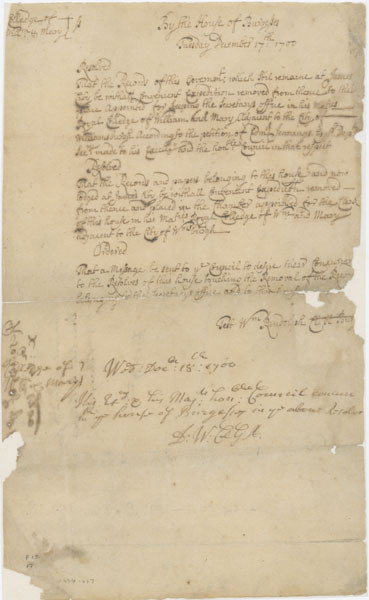 Colledge of
Will: & Mary
By the House of Burgesses
Tuesday December 17th 1700
Resolved
That the Records of this Government which still remaine at James
City be with all convenient expedition removed from thence to the
place appointed for keeping the Secretarys office in his Maties
Royal Colledge of William and Mary Adjacent to the City of
Williamsburgh According to the petition of Jenings
made to his Excellcy and the honble Council in that respect
Resolved
That the Records and papers belonging to this House and now
lodged at James City be with all convenient expedition removed
from thence and placed in the Chamber appointed for the Clerk
of this house in his Maties Royal Colledge of Wm and Mary
Adjacent to the City of Wmsburgh
Ordered
That a Message be sent to ye Council to desire their Concurrence
to the Resolves of this house touching the Removal of the Records
Test Wm Randolph
Wed: Decr: 18: 1700
His & his Majts: hon: Council concur
ye house of Burgesses in ye above
D. W. CGA